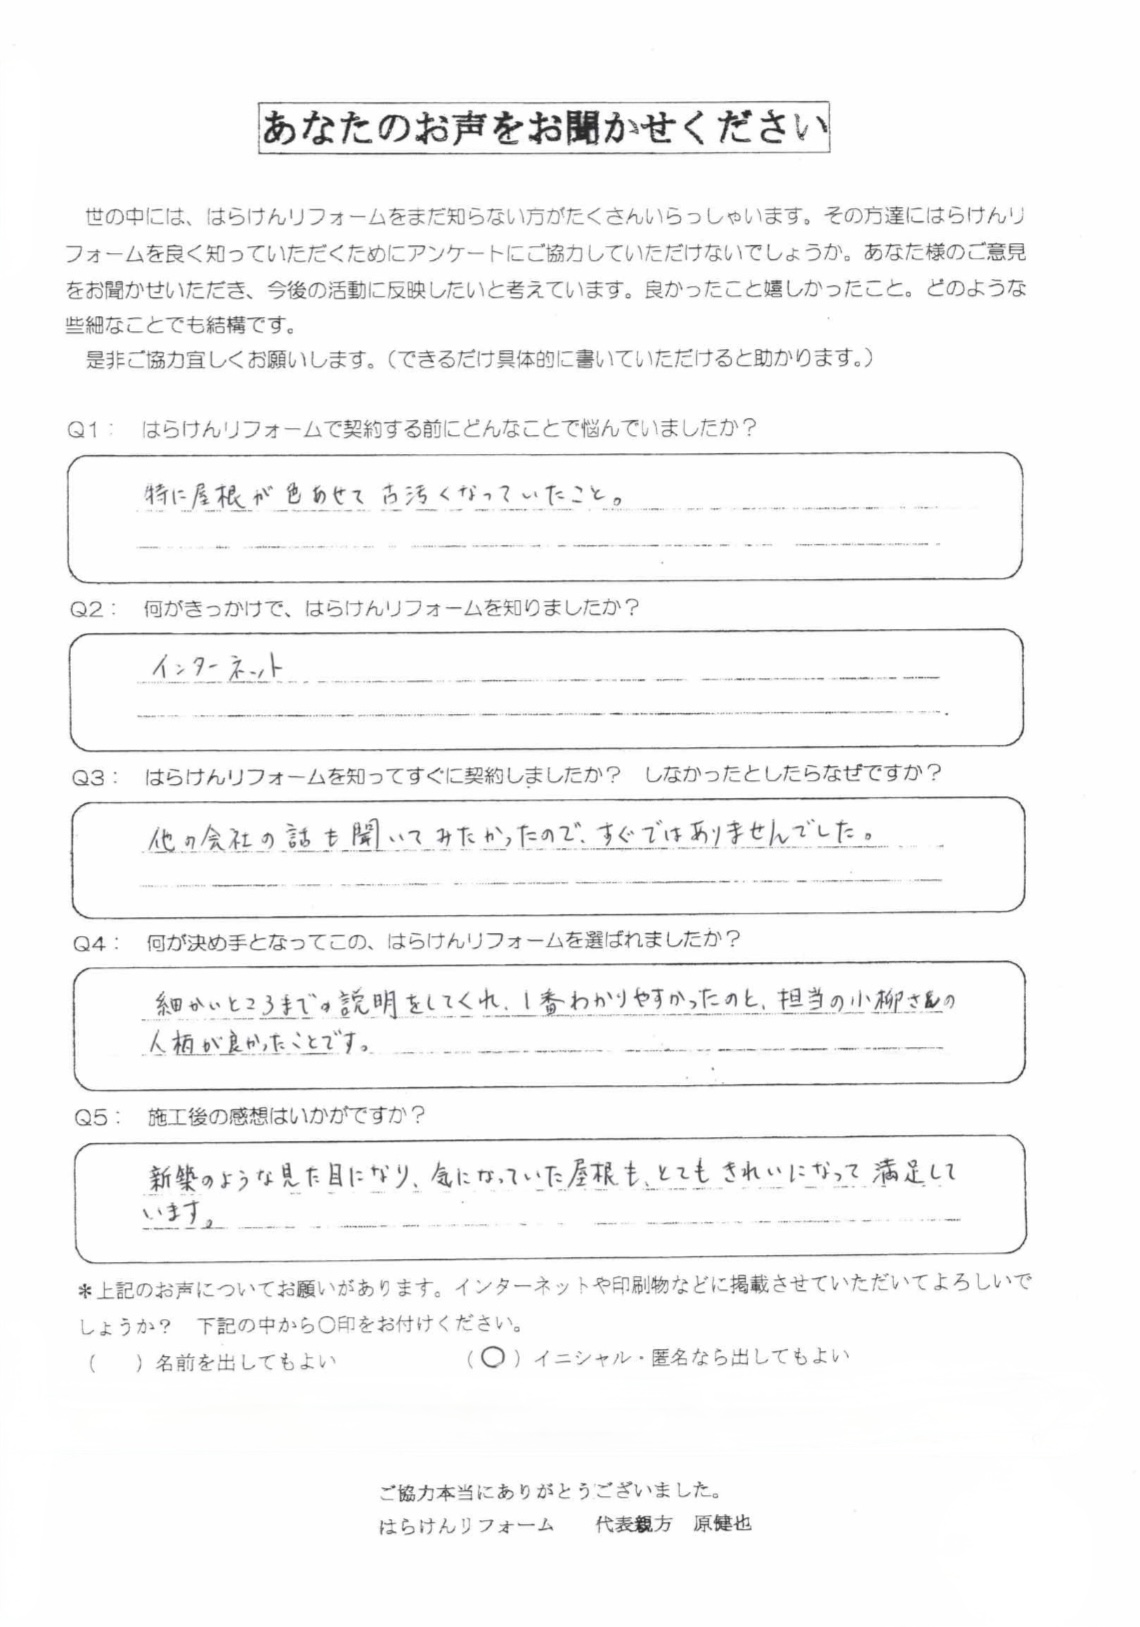 あなたのお声をお聞かせください
世の中には、はらけんリフォームをまだ知らない方がたくさんいらっしゃいます。その方達にはらけんリ
フォームを良く知っていただくためにアンケートにご協力していただけないでしょうか。あなた様のご意見
をお聞かせいただき、今後の活動に反映したいと考えています。良かったこと嬉しかったこと。どのような
些細なことでも結構です。
是非ご協力宜しくお願いします。（できるだけ具体的に書いていただけると助かります。）
Q1： はらけんリフォームで契約する前にどんなことで悩んでいましたか？
特に屋根が色あせて古汚くなっていたこと。
Q2： 何がきっかけで、はらけんリフォームを知りましたか？
インターネット
Q3： はらけんリフォームを知ってすぐに契約しましたか？ しなかったとしたらなぜですか？
他の会社の話も聞いてみたかったので、すぐではありませんでした。
Q4： 何が決め手となってこの、はらけんリフォームを選ばれましたか？
細かいところまでの説明をしてくれ、1番わかりやすかったのと、担当の小柳さんの
人柄が良かったことです。
Q5： 施工後の感想はいかがですか？
新築のような見た目になり、気になっていた屋根も、とてもきれいになって満足して
います。
＊上記のお声についてお願いがあります。インターネットや印刷物などに掲載させていただいてよろしいで
しょうか？ 下記の中から○印をお付けください。
（ ）名前を出してもよい （○）イニシャル・匿名なら出してもよい
ご協力本当にありがとうございました。
はらけんリフォーム 代表親方 原健也